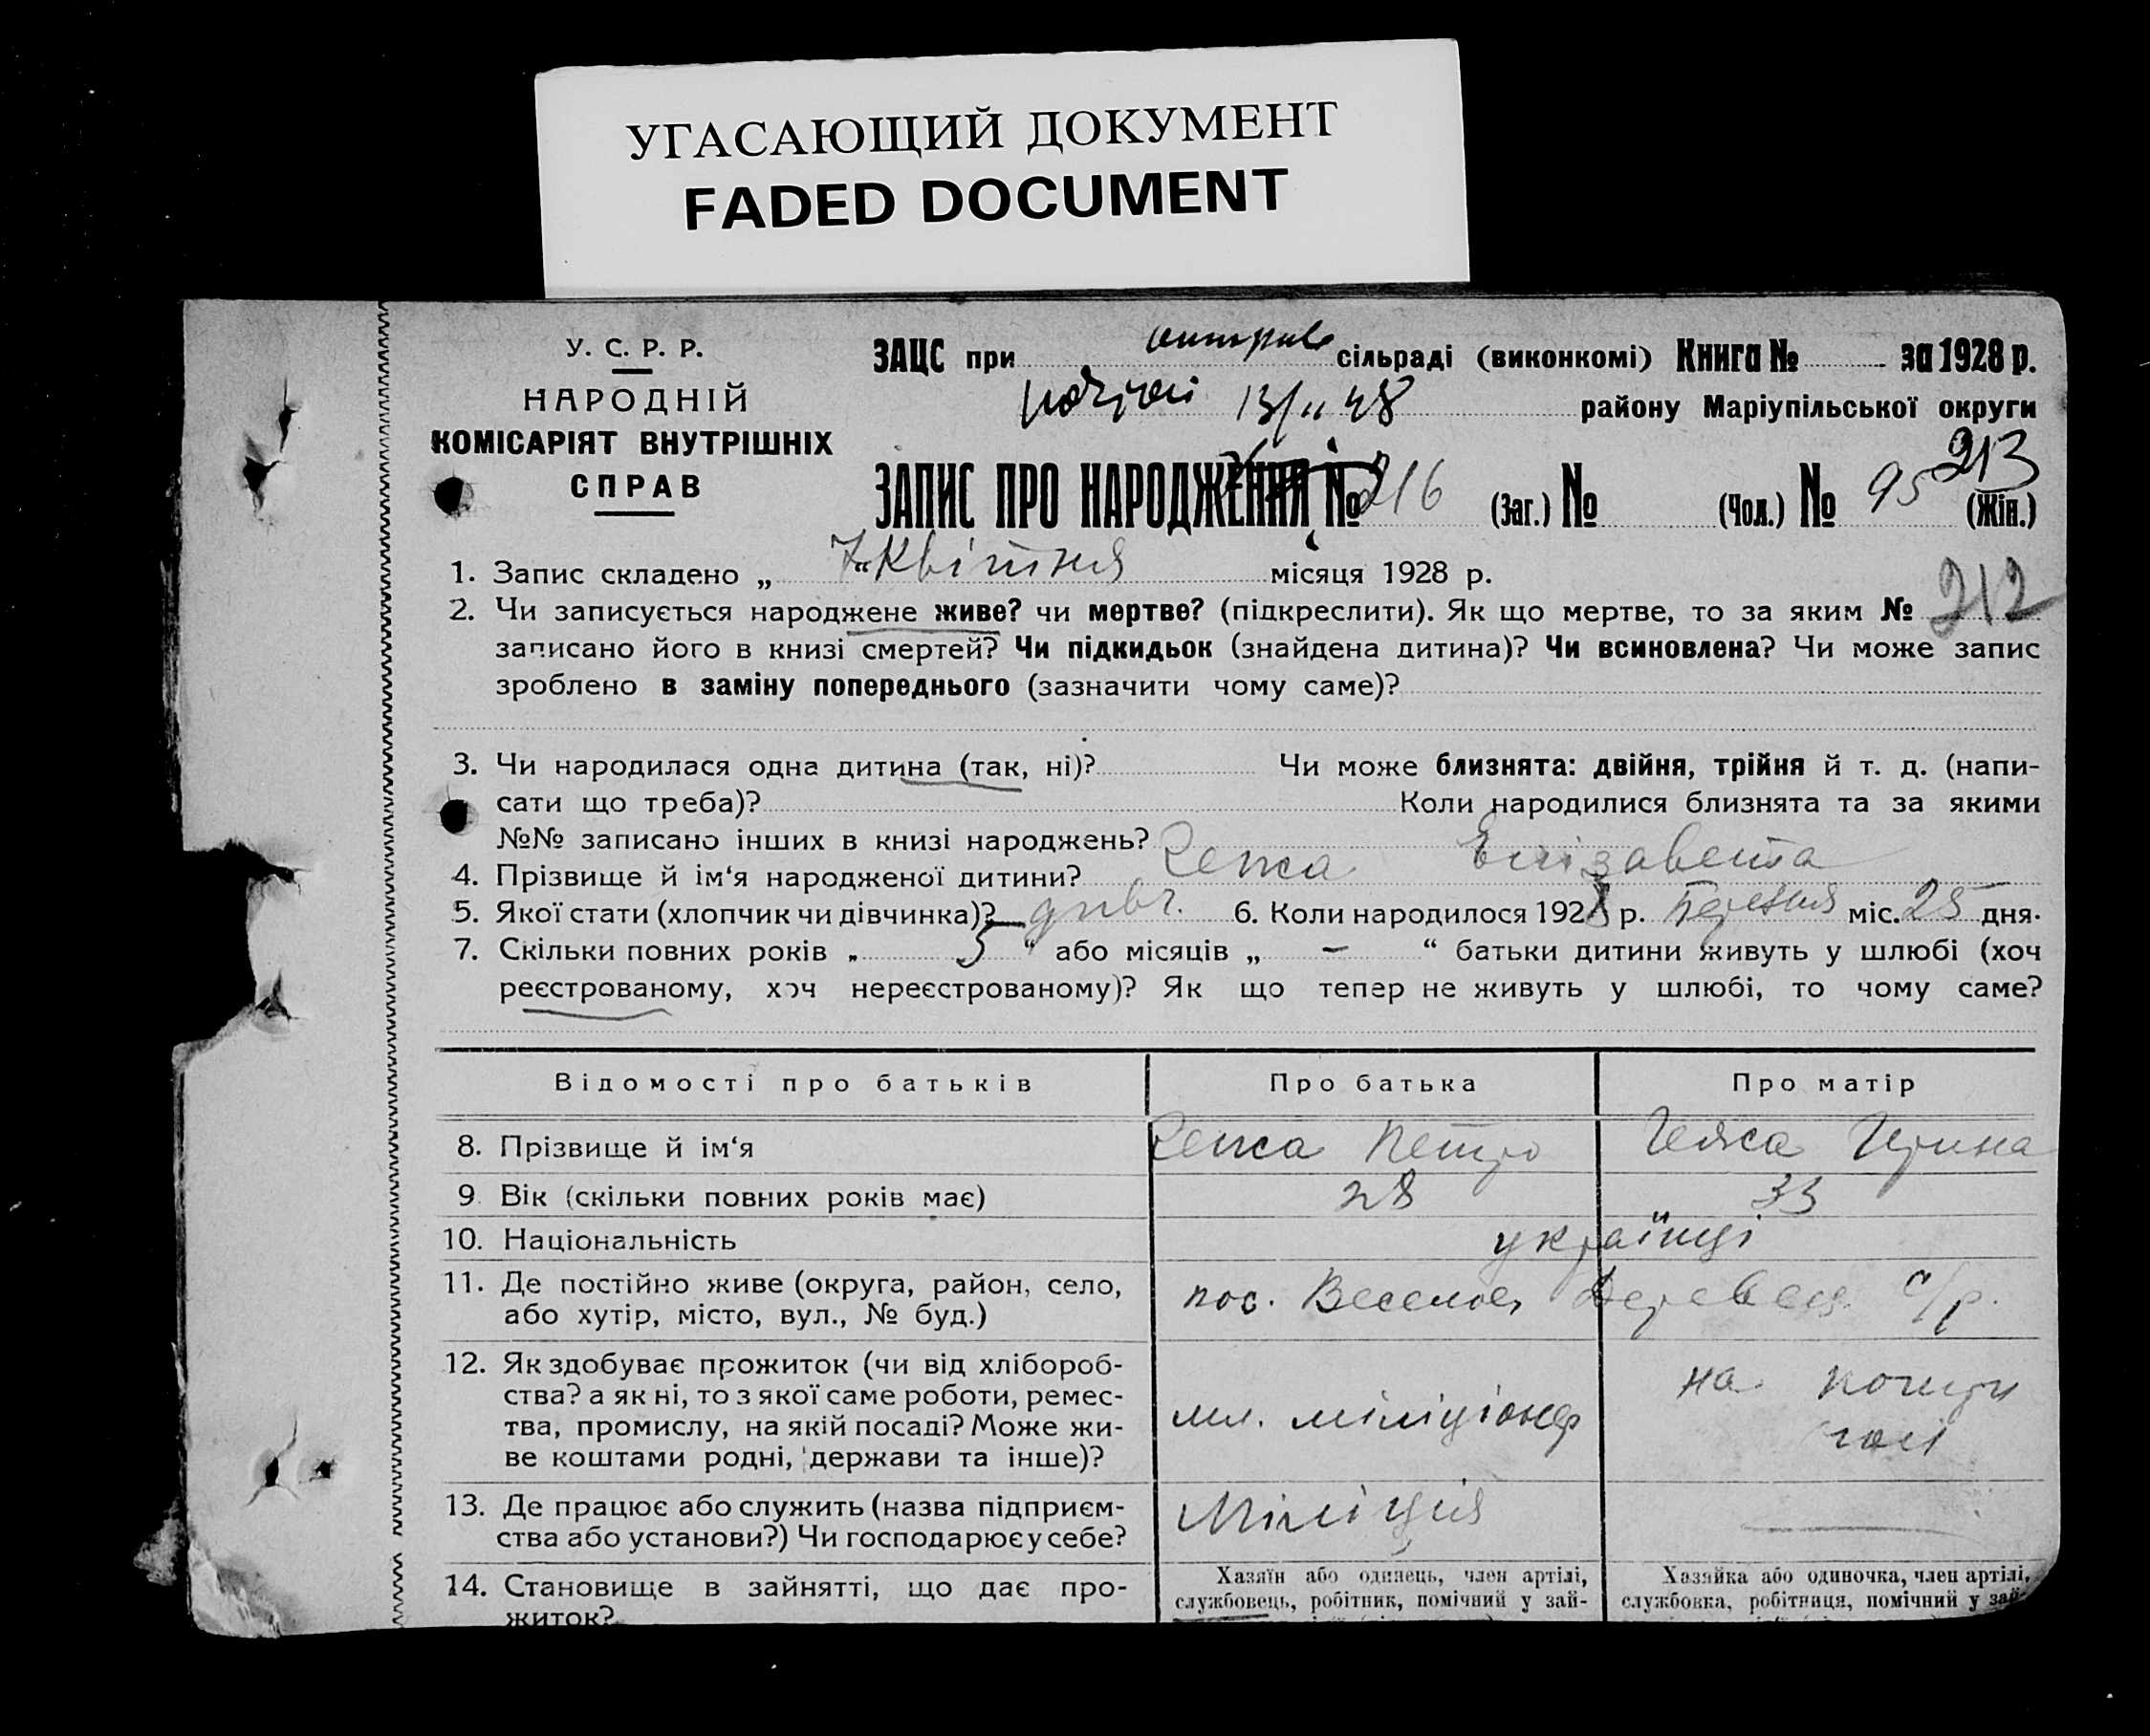 УГАСАЮЩИЙ ДОКУМЕНТ
FADED DOCUMENT
У. С. Р. Р.
НАРОДНІЙ
КОМІСАРІЯТ ВНУТРІШНІХ
СПРАВ
ЗАЦС при сільраді (виконкомі) Книга № за 1928 р.
13/II 48 району Маріупільської округи
213
ЗАПИС ПРО НАРОДЖЕННЯ № 216 (Заг.) № (Чол.) № 95 (Жін.)
1. Запис складено „ 7 “ Квітня місяця 1928 р.
2. Чи записується народжене живе? чи мертве? (підкреслити). Як що мертве, то за яким № 212
записано його в книзі смертей? Чи підкидьок (знайдена дитина)? Чи всиновлена? Чи може запис
зроблено в заміну попереднього (зазначити чому саме)?
3. Чи народилася одна дитина (так, ні)? Чи може близнята: двійня, трійня й т. д. (напи-
сати що треба)? Коли народилися близнята та за якими
№№ записано інших в книзі народжень?
4. Прізвище й ім‘я народженої дитини? Єлізавета
5. Якої стати (хлопчик чи дівчинка)? дівч. 6. Коли народилось 1928 р. Березня міс. 25 дня.
7. Скільки повних років „ 5 “ або місяців „ – “ батьки дитини живуть у шлюбі (хоч
реєстрованому, хоч нереєстрованому)? Як що тепер не живуть у шлюбі, то чому саме?
Відомості про батьків Про батька Про матір
8. Прізвище й ім‘я Петро
9. Вік (скільки повних років має) 28 33
10. Національність українці
11. Де постійно живе (округа, район, село,
або хутір, місто, вул., № буд.) пос. Веселое, с/р.
12. Як здобуває прожиток (чи від хлібороб-
ства? а як ні, то з якої саме роботи, ремес-
тва, промислу, на якій посаді? Може жи-
ве коштами родні, держави та інше)? мл. міліціонер на
13. Де працює або служить (назва підприєм-
ства або установи?) Чи господарює у себе? Міліція
14. Становище в зайнятті, що дає про-
житок?
Хазяїн або одинець, член артілі,
службовець, робітник, помічний у зай-
Хазяйка або одиночка, член артілі,
службовка, робітниця, помічний у зай-